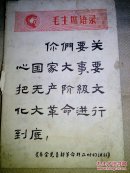 毛主席语录
你們要关
心国家大事，要
把无产阶级文
化大革命进行
到底！